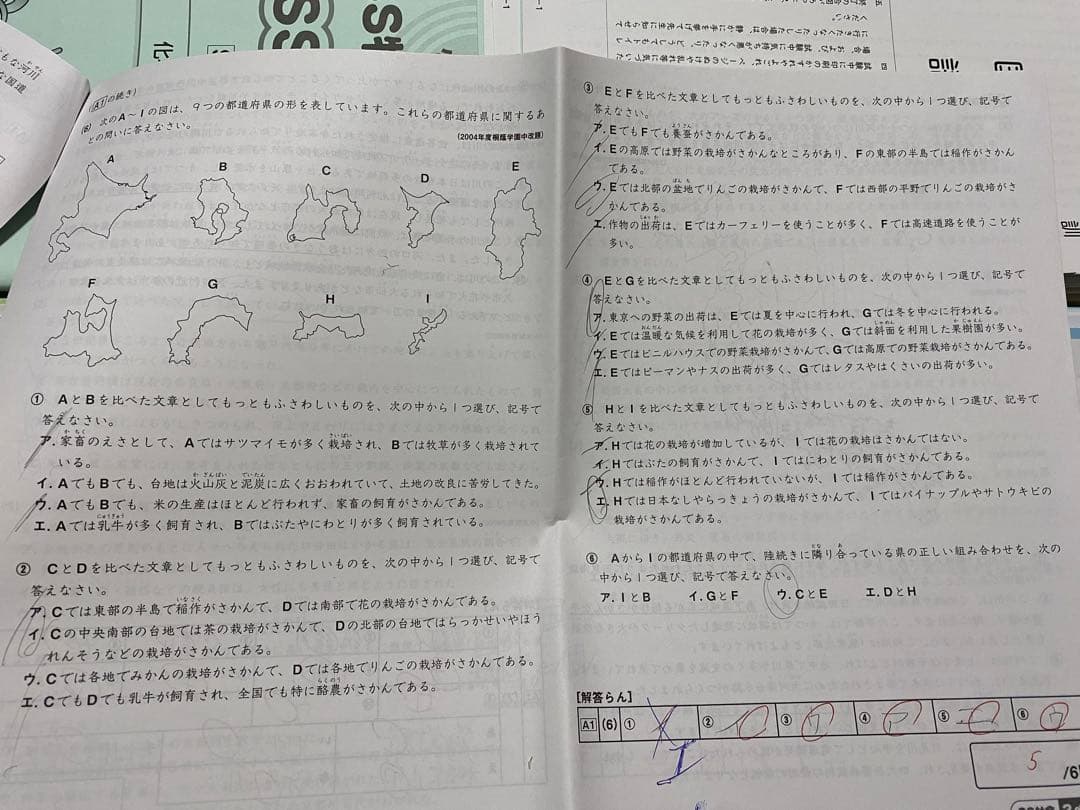 もな河川
な国道
SS
五
ください。
に行きたくなったりした場合は、静かに手を挙げて先生に知らせて
四
A1の続き)
(6) 次のA～Iの図は、9つの都道府県の形を表しています。これらの都道府県に関するあ
との問いに答えなさい。
(2004年度桐蔭学園中改題)
A
B
C
D
E
F
G
H
I
① AとBを比べた文章としてもっともふさわしいものを、次の中から1つ選び、記号で
答えなさい。
ア. 家畜のえさとして、Aではサツマイモが多く栽培され、Bでは牧草が多く栽培されて
いる。
イ. AでもBでも、台地は火山灰と泥炭に広くおおわれていて、土地の改良に苦労してきた。
ウ. AでもBでも、米の生産はほとんど行われず、家畜の飼育がさかんである。
エ. Aでは乳牛が多く飼育され、Bではぶたやにわとりが多く飼育されている。
② CとDを比べた文章としてもっともふさわしいものを、次の中から1つ選び、記号で
答えなさい。
ア. Cでは東部の半島で稲作がさかんで、Dでは南部で花の栽培がさかんである。
イ. Cの中央南部の台地では茶の栽培がさかんで、Dの北部の台地ではらっかせいやほう
れんそうなどの栽培がさかんである。
ウ. Cでは各地でみかんの栽培がさかんで、Dでは各地でりんごの栽培がさかんである。
エ. CでもDでも乳牛が飼育され、全国でも特に酪農がさかんである。
③ EとFを比べた文章としてもっともふさわしいものを、次の中から1つ選び、記号で
答えなさい。
ア. EでもFでも養蚕がさかんである。
イ. Eの高原では野菜の栽培がさかんなところがあり、Fの東部の半島では稲作がさかん
である。
ウ. Eでは北部の盆地でりんごの栽培がさかんで、Fでは西部の平野でりんごの栽培がさ
かんである。
エ. 作物の出荷は、Eではカーフェリーを使うことが多く、Fでは高速道路を使うことが
多い。
④ EとGを比べた文章としてもっともふさわしいものを、次の中から1つ選び、記号で
答えなさい。
ア. 東京への野菜の出荷は、Eでは夏を中心に行われ、Gでは冬を中心に行われる。
イ. Eでは温暖な気候を利用して花の栽培が多く、Gでは斜面を利用した果樹園が多い。
ウ. Eではビニルハウスでの野菜栽培がさかんで、Gでは高原での野菜栽培がさかんである。
エ. Eではピーマンやナスの出荷が多く、Gではレタスやはくさいの出荷が多い。
⑤ HとIを比べた文章としてもっともふさわしいものを、次の中から1つ選び、記号で
答えなさい。
ア. Hでは花の栽培が増加しているが、Iでは花の栽培はさかんではない。
イ. Hではぶたの飼育がさかんで、Iではにわとりの飼育がさかんである。
ウ. Hでは稲作がほとんど行われていないが、Iでは稲作がさかんである。
エ. Hでは日本なしやらっきょうの栽培がさかんで、Iではパイナップルやサトウキビの
栽培がさかんである。
⑥ AからIの都道府県の中で、陸続きに隣り合っている県の正しい組み合わせを、次の
中から1つ選び、記号で答えなさい。
ア. IとB イ. GとF ウ. CとE エ. DとH
[解答らん]
A1 (6) ① エ ② イ ③ ウ ④ ア ⑤ エ ⑥ ウ
5 /6